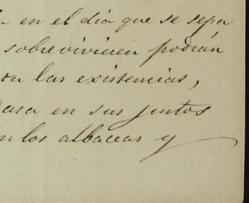 en el dia que se sepa
sobrevivieren podrán
las existencias,
en sus juntos
los albaceas y